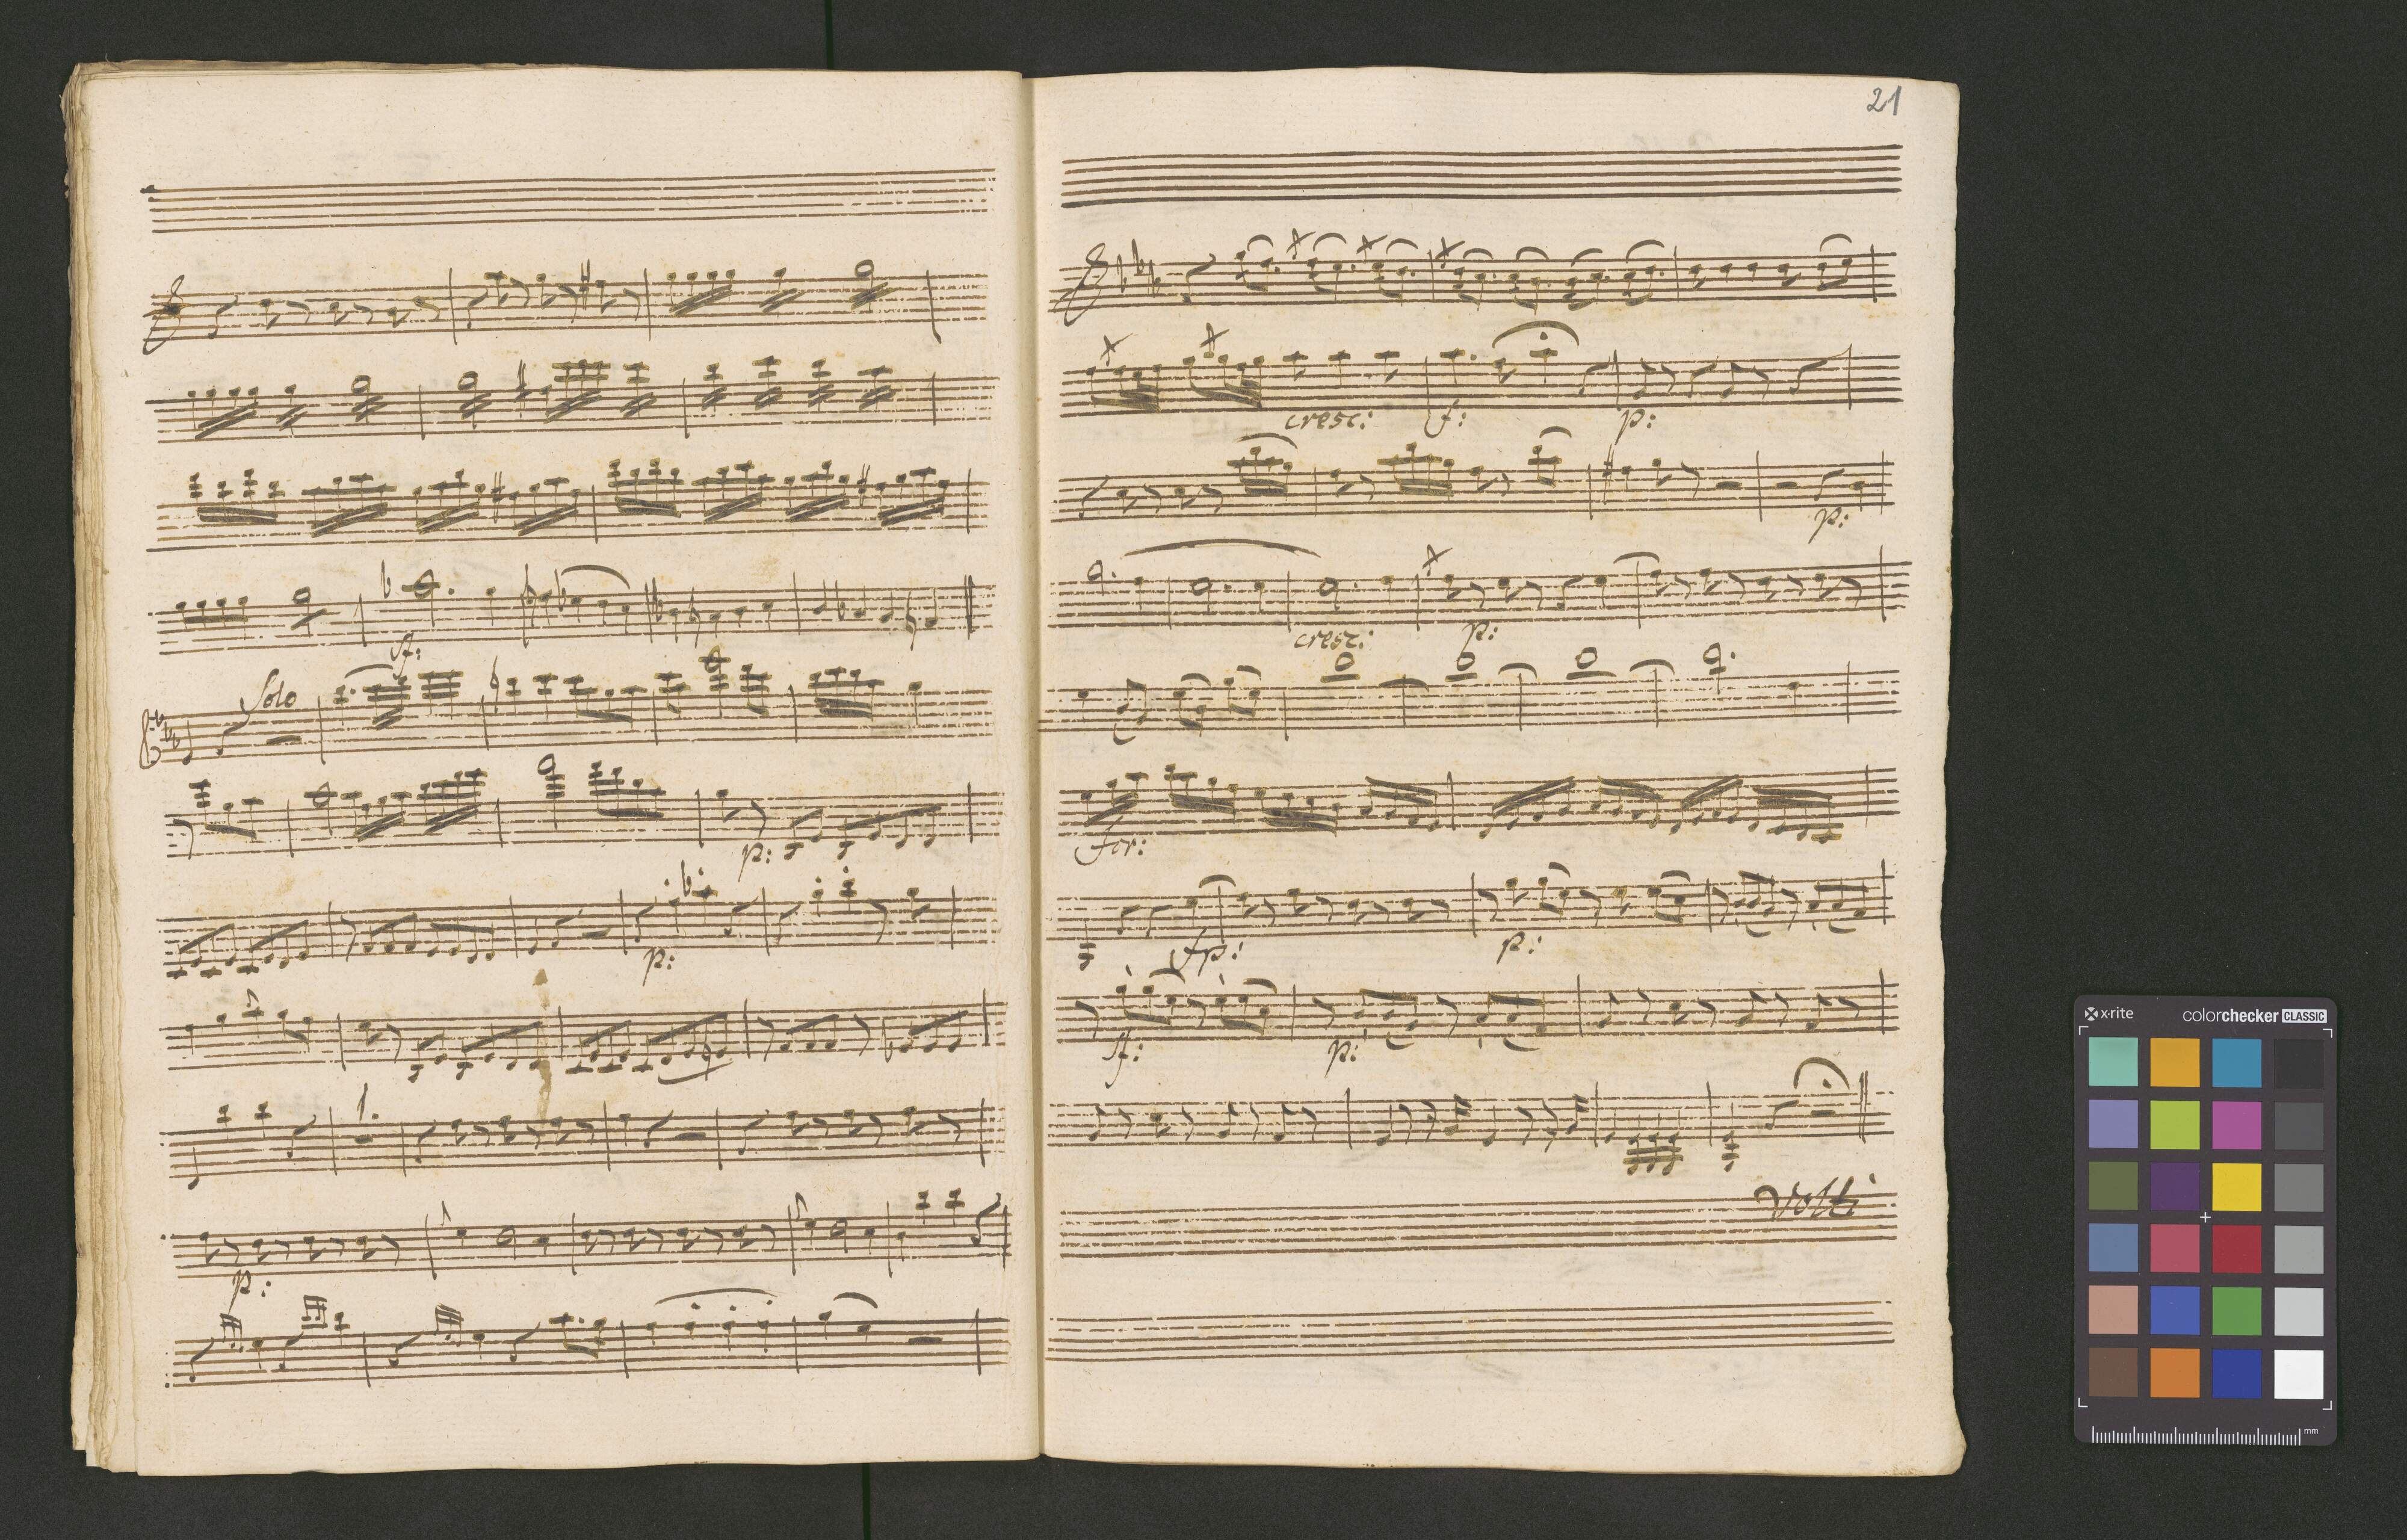 ff:
Solo
p:
p:
1.
p:
21
cresc: f: p:
p:
cresc: p:
for:
fp: p:
ff: p:
Volti
x-rite colorchecker CLASSIC
mm